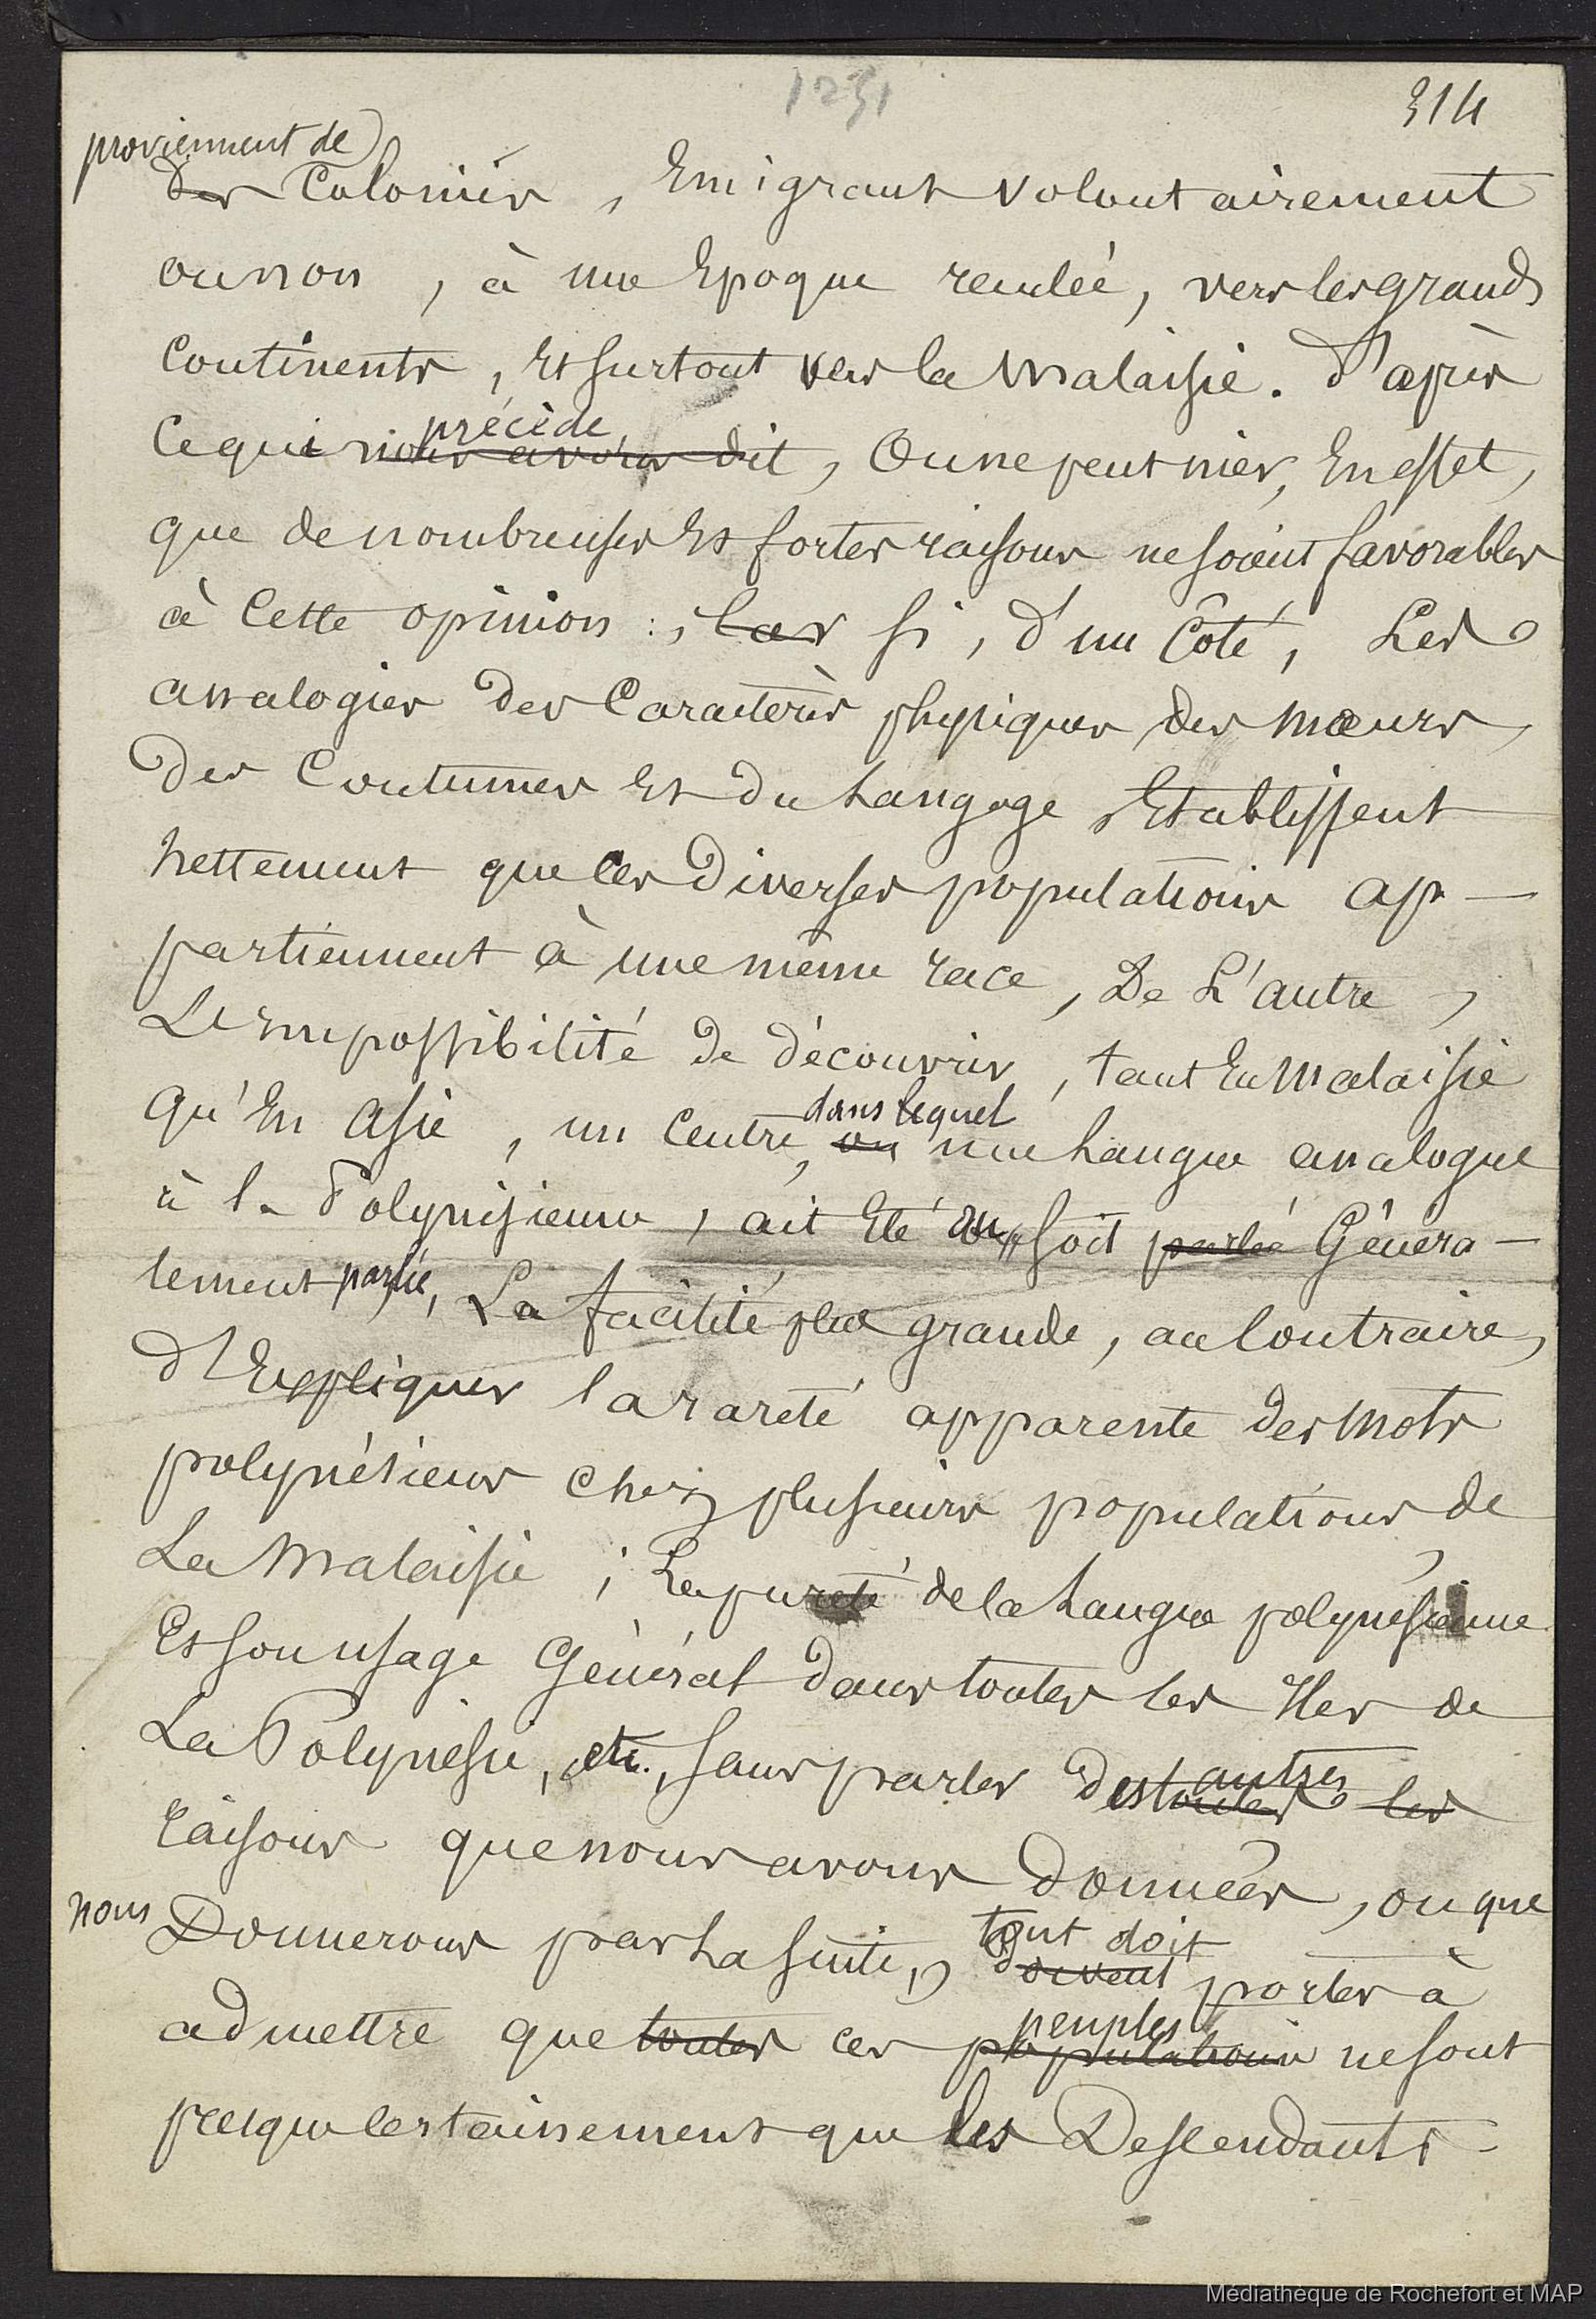 1231
314
proviennent de
des Colonies, Emigrant volontairement
ou non, à une Epoque reculée, vers les grands
Continents, Et surtout vers la Malaisie. D'après
précède
Ce qui nous avons dit, On ne peut nier, En effet,
que de nombreuses Et fortes raisons ne soient favorables
à Cette opinion : Car si, d'un Côté, Les
analogies des Caractères physiques des mœurs,
des Coutumes Et du Langage Etablissent
nettement que ces diverses populations ap-
partiennent à une même race, De L'autre,
L'Impossibilité de découvrir, tant En Malaisie
dans lequel
qu'En Asie, un Centre, où une Langue analogue
à la Polynésienne, ait Eté ou soit parlée Généra-
lement parlée, La facilité plus grande, au Contraire,
d'Expliquer la rareté apparente des Mots
polynésiens Chez plusieurs populations de
La Malaisie ; La pureté de la Langue polynésienne
Et son usage Général dans toutes les Iles de
autres
La Polynésie, etc., sans parler des toutes les
raisons que nous avons données, ou que
nous
tout doit
Donnerons par La suite, doivent porter à
peuples
admettre que toutes ces populations ne sont
presque Certainement que les Descendants
Médiathèque de Rochefort et MAP